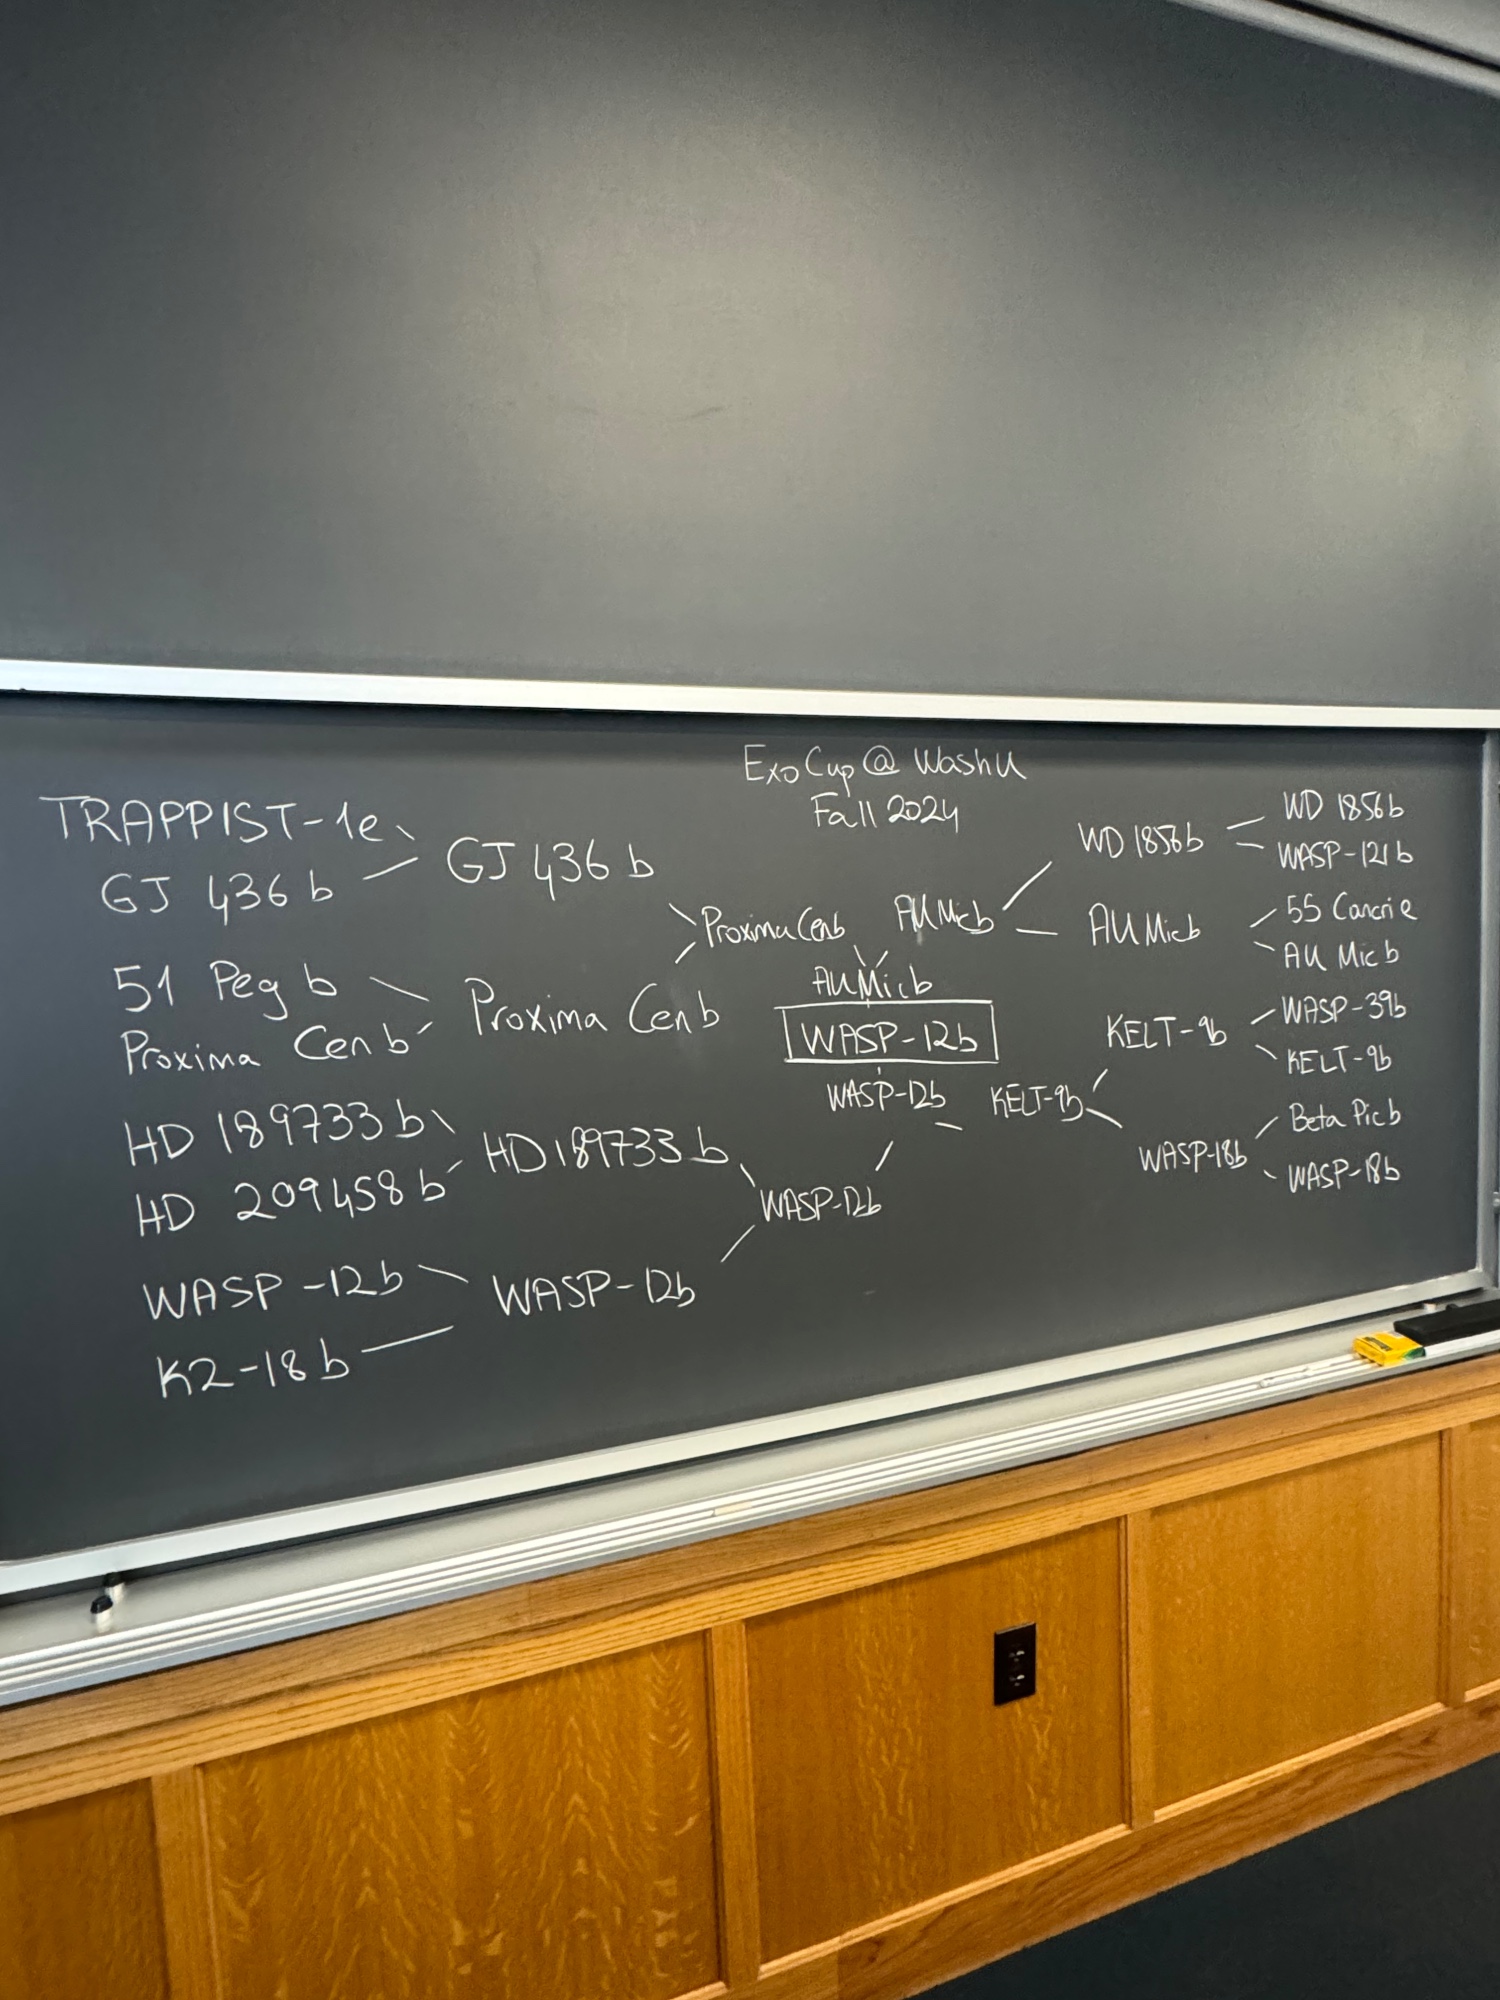 ExoCup @ WashU
Fall 2024
TRAPPIST-1e
GJ 436 b
51 Peg b
Proxima Cen b
HD 189733 b
HD 209458 b
WASP-12b
K2-18 b
GJ 436 b
Proxima Cen b
HD 189733 b
WASP-12b
Proxima Cen b
WASP-12b
AU Mic b
WASP-12b
WASP-12b
AU Mic b
KELT-9b
WD 1856 b
AU Mic b
KELT-9b
WASP-18b
WD 1856 b
WASP-121 b
55 Cancri e
AU Mic b
WASP-39b
KELT-9b
Beta Pic b
WASP-18b